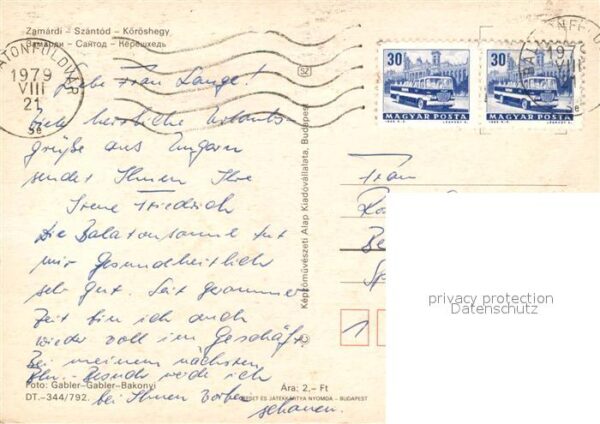 Zamárdi – Szántód – Kőröshegy
Замарди – Саятод – Керешхедь
BALATONFÖLDVÁR
1979
VIII
21
SZ
30
30
MAGYAR POSTA
MAGYAR POSTA
Liebe Frau Lange!
Viele herzliche Urlaubs-
grüße aus Ungarn
sendet Ihnen Ihre
Irene Friedrich
Die Balatonsonne tut
mir gesundheitlich
sehr gut. Seit geraumer
Zeit bin ich auch
wieder voll im Geschäft.
Bei meinem nächsten
Bln.-Besuch werde ich
bei Ihnen vorbei
schauen.
Képzőművészeti Alap Kiadóvállalata, Budapest
Frau
1
privacy protection
Datenschutz
Foto: Gabler–Gabler–Bakonyi
DT.–344/792.
Ára: 2,– Ft
ÉS JÁTÉKKÁRTYA NYOMDA – BUDAPEST